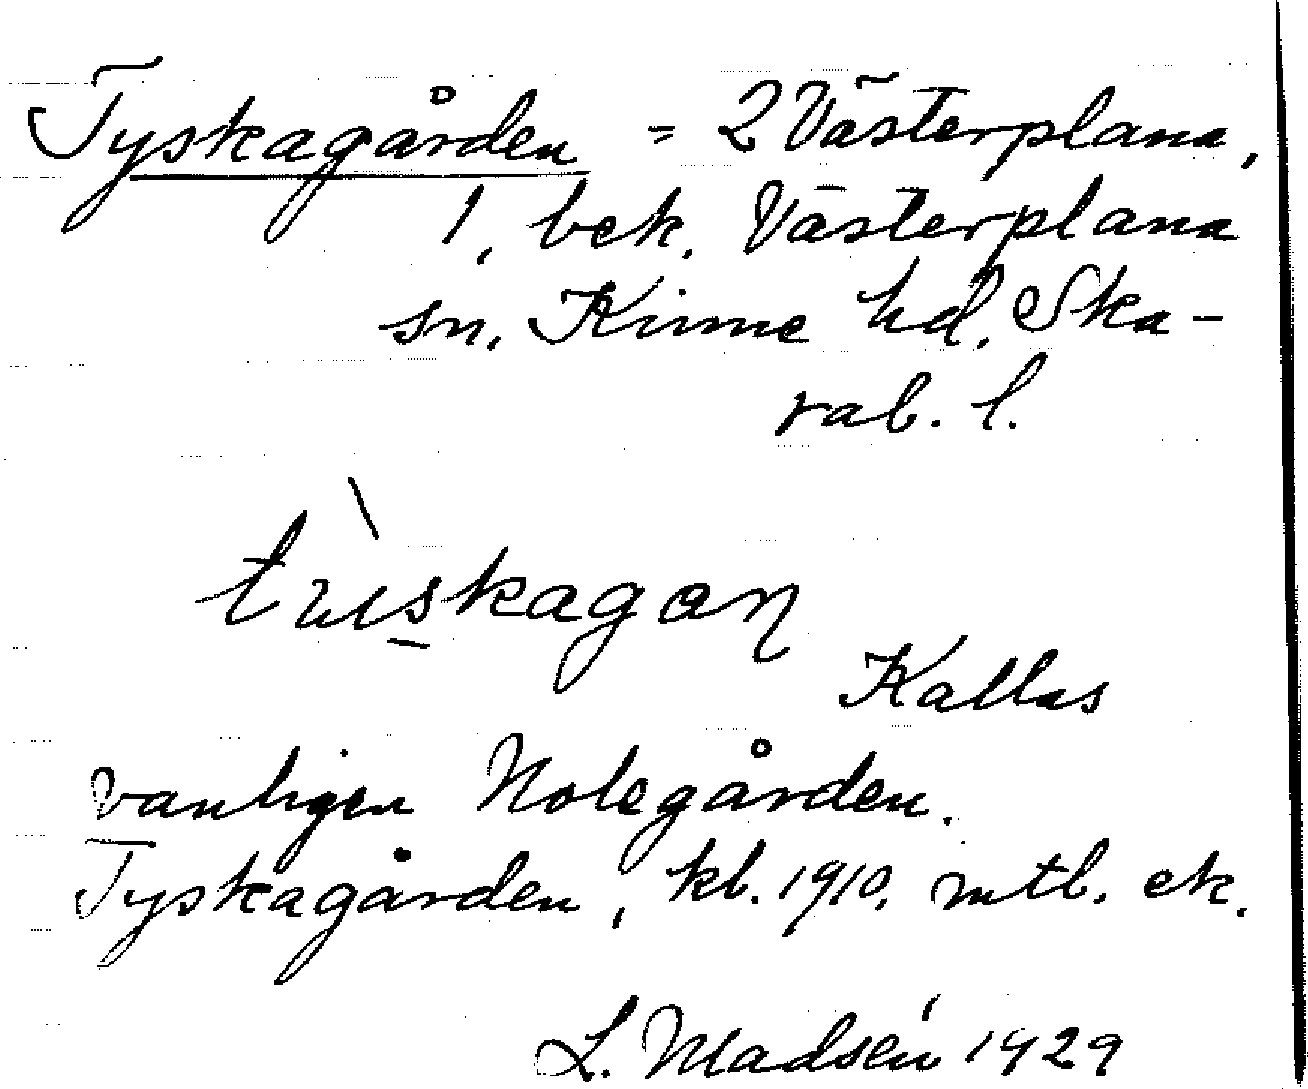 Tyskagården = 2 Västerplana,
1, bek. Västerplana
sn. Kinne hd. Ska-
rab. l.
Kallas
vanligen Nolegården.
Tyskagården, kb. 1910. mtl. ek.
L. Madsén 1929